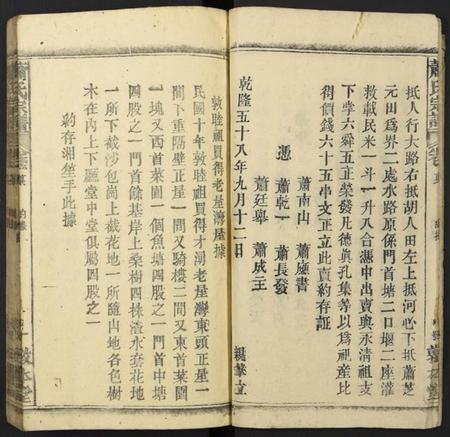 蕭氏宗譜
抵人行大路右抵胡人田左上抵河心下抵蕭芝
元田為界二處水路原係門首塘二口堰二座灌
救載民米一斗一升八合憑中出賣與永清祖支
下掌六舜五正榮發凡德眞孔集等以為祖產比
得價錢六十五串文正立此賣約存証
蕭南山 蕭廬書
憑 蕭乾一 蕭長發
蕭廷舉 蕭成主
乾隆五十八年九月十二日 親筆立
敦睦祖買得老屋灣屋據
民國十年敦睦祖買得才湧老屋灣東頭正屋一
間下重隔壁正屋一間又騎樓二間又東首菜園
一塊又西首菜園一個魚塘四股之一門首中塘
四股之一門首餘基岸上桑樹四株渣水套花地
一所下截沙包崗上截花地一所隨山地各色樹
木在內上下廳堂中堂俱屬四股之一
約存湘垄手此據
蕭氏宗譜
敦本堂